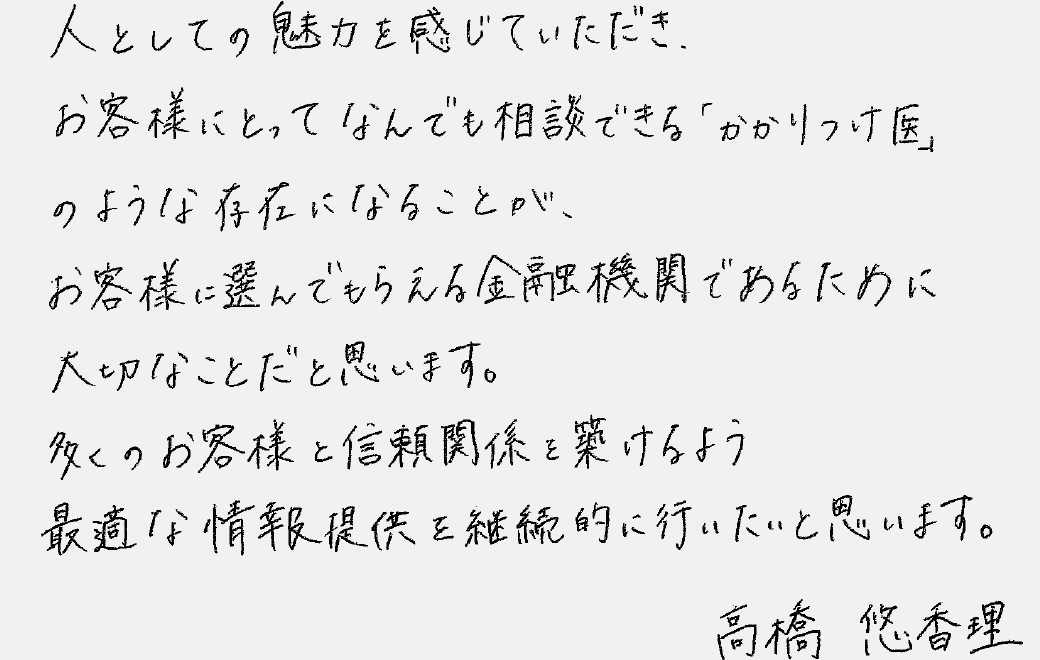 人としての魅力を感じていただき、
お客様にとってなんでも相談できる「かかりつけ医」
のような存在になることが、
お客様に選んでもらえる金融機関であるために
大切なことだと思います。
多くのお客様と信頼関係を築けるよう
最適な情報提供を継続的に行いたいと思います。
高橋 悠香理